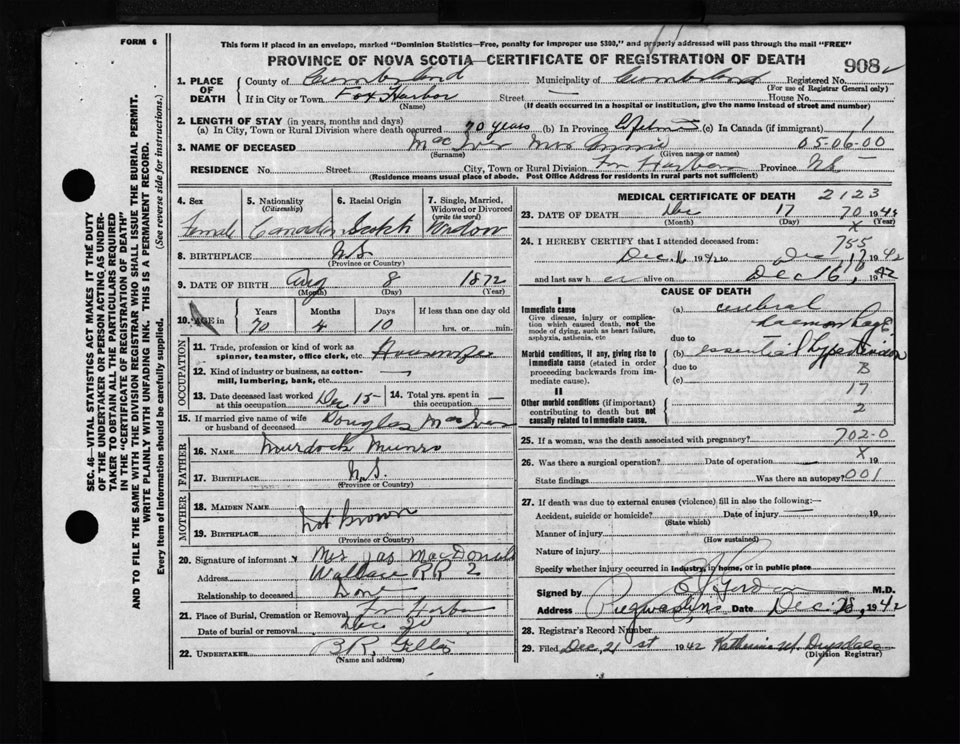 FORM 6
This form if placed in an envelope, marked "Dominion Statistics—Free, penalty for improper use $300," and properly addressed will pass through the mail "FREE"
PROVINCE OF NOVA SCOTIA—CERTIFICATE OF REGISTRATION OF DEATH
908
1. PLACE OF DEATH
County of Cumberland Municipality of Cumberland Registered No.
(For use of Registrar General only)
If in City or Town Fox Harbor Street — House No.
(Name) (If death occurred in a hospital or institution, give the name instead of street and number)
2. LENGTH OF STAY (in years, months and days)
(a) In City, Town or Rural Division where death occurred 70 years (b) In Province (c) In Canada (if immigrant) 1
3. NAME OF DECEASED MacIver Mrs Annie 05-06-00
(Surname) (Given name or names)
RESIDENCE No. Street City, Town or Rural Division Fox Harbor Province N.S.
(Residence means usual place of abode. Post Office Address for residents in rural parts not sufficient)
4. Sex Female
5. Nationality (Citizenship) Canadian
6. Racial Origin Scotch
7. Single, Married, Widowed or Divorced (write the word) Widow
8. BIRTHPLACE N.S.
(Province or Country)
9. DATE OF BIRTH Aug 8 1872
(Month) (Day) (Year)
10. AGE in Years Months Days If less than one day old
70 4 10 hrs. or min.
OCCUPATION
11. Trade, profession or kind of work as spinner, teamster, office clerk, etc. Housewife
12. Kind of industry or business, as cotton-mill, lumbering, bank, etc. —
13. Date deceased last worked at this occupation Dec 15 — 14. Total yrs. spent in this occupation —
15. If married give name of wife or husband of deceased Douglas MacIver
FATHER
16. NAME Murdock Munro
17. BIRTHPLACE N.S.
(Province or Country)
MOTHER
18. MAIDEN NAME
not known
19. BIRTHPLACE
(Province or Country)
20. Signature of informant Mrs Jas MacDonald
Address Wallace RR 2
Relationship to deceased
21. Place of Burial, Cremation or Removal Fox Harbor
Date of burial or removal Dec 20
22. UNDERTAKER B.R. Gillis
(Name and address)
MEDICAL CERTIFICATE OF DEATH 2123
23. DATE OF DEATH Dec 17 70 1942
(Month) (Day) (Year)
X
24. I HEREBY CERTIFY that I attended deceased from: 755
Dec. 16 1942 to Dec. 17 1942
and last saw h er alive on Dec 16, 1942
CAUSE OF DEATH
I
Immediate cause
Give disease, injury or complication which caused death, not the mode of dying, such as heart failure, asphyxia, asthenia, etc
(a) cerebral haemorrhage
due to
Morbid conditions, if any, giving rise to immediate cause (stated in order proceeding backwards from immediate cause).
(b) essential hypertension
due to 8
(c)
II
17
Other morbid conditions (if important) contributing to death but not causally related to immediate cause.
2
25. If a woman, was the death associated with pregnancy? 702-0
X
26. Was there a surgical operation? — Date of operation — 19
State findings Was there an autopsy? 001
27. If death was due to external causes (violence) fill in also the following:—
Accident, suicide or homicide? — Date of injury — 19
(State which)
Manner of injury
(How sustained)
Nature of injury
Specify whether injury occurred in industry, in home, or in public place
Signed by M.D.
Address Pugwash N.S. Date Dec 18, 1942
28. Registrar's Record Number
29. Filed Dec. 21st 1942 Katherine W. Drysdale
(Division Registrar)
SEC. 46—VITAL STATISTICS ACT MAKES IT THE DUTY
OF THE UNDERTAKER OR PERSON ACTING AS UNDER-
TAKER TO OBTAIN ALL THE PARTICULARS REQUIRED
IN THE "CERTIFICATE OF REGISTRATION OF DEATH"
AND TO FILE THE SAME WITH THE DIVISION REGISTRAR WHO SHALL ISSUE THE BURIAL PERMIT.
WRITE PLAINLY WITH UNFADING INK. THIS IS A PERMANENT RECORD.
Every item of Information should be carefully supplied. (See reverse side for instructions.)